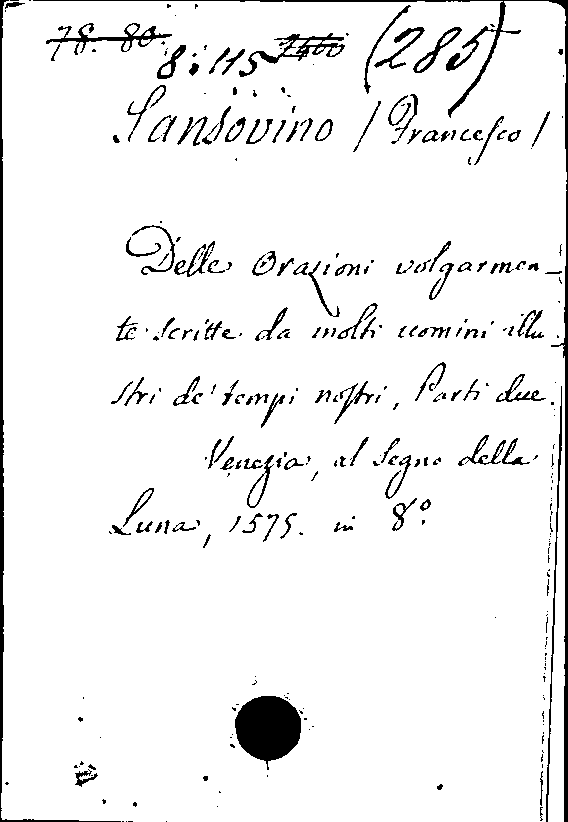 78. 80. 8:115 7460 (285)
Sansovino / Francesco /
Delle Orazioni volgarmen-
te scritte da molti uomini illu-
stri de' tempi nostri, Parti due.
Venezia, al Segno della
Luna, 1575. in 8.°